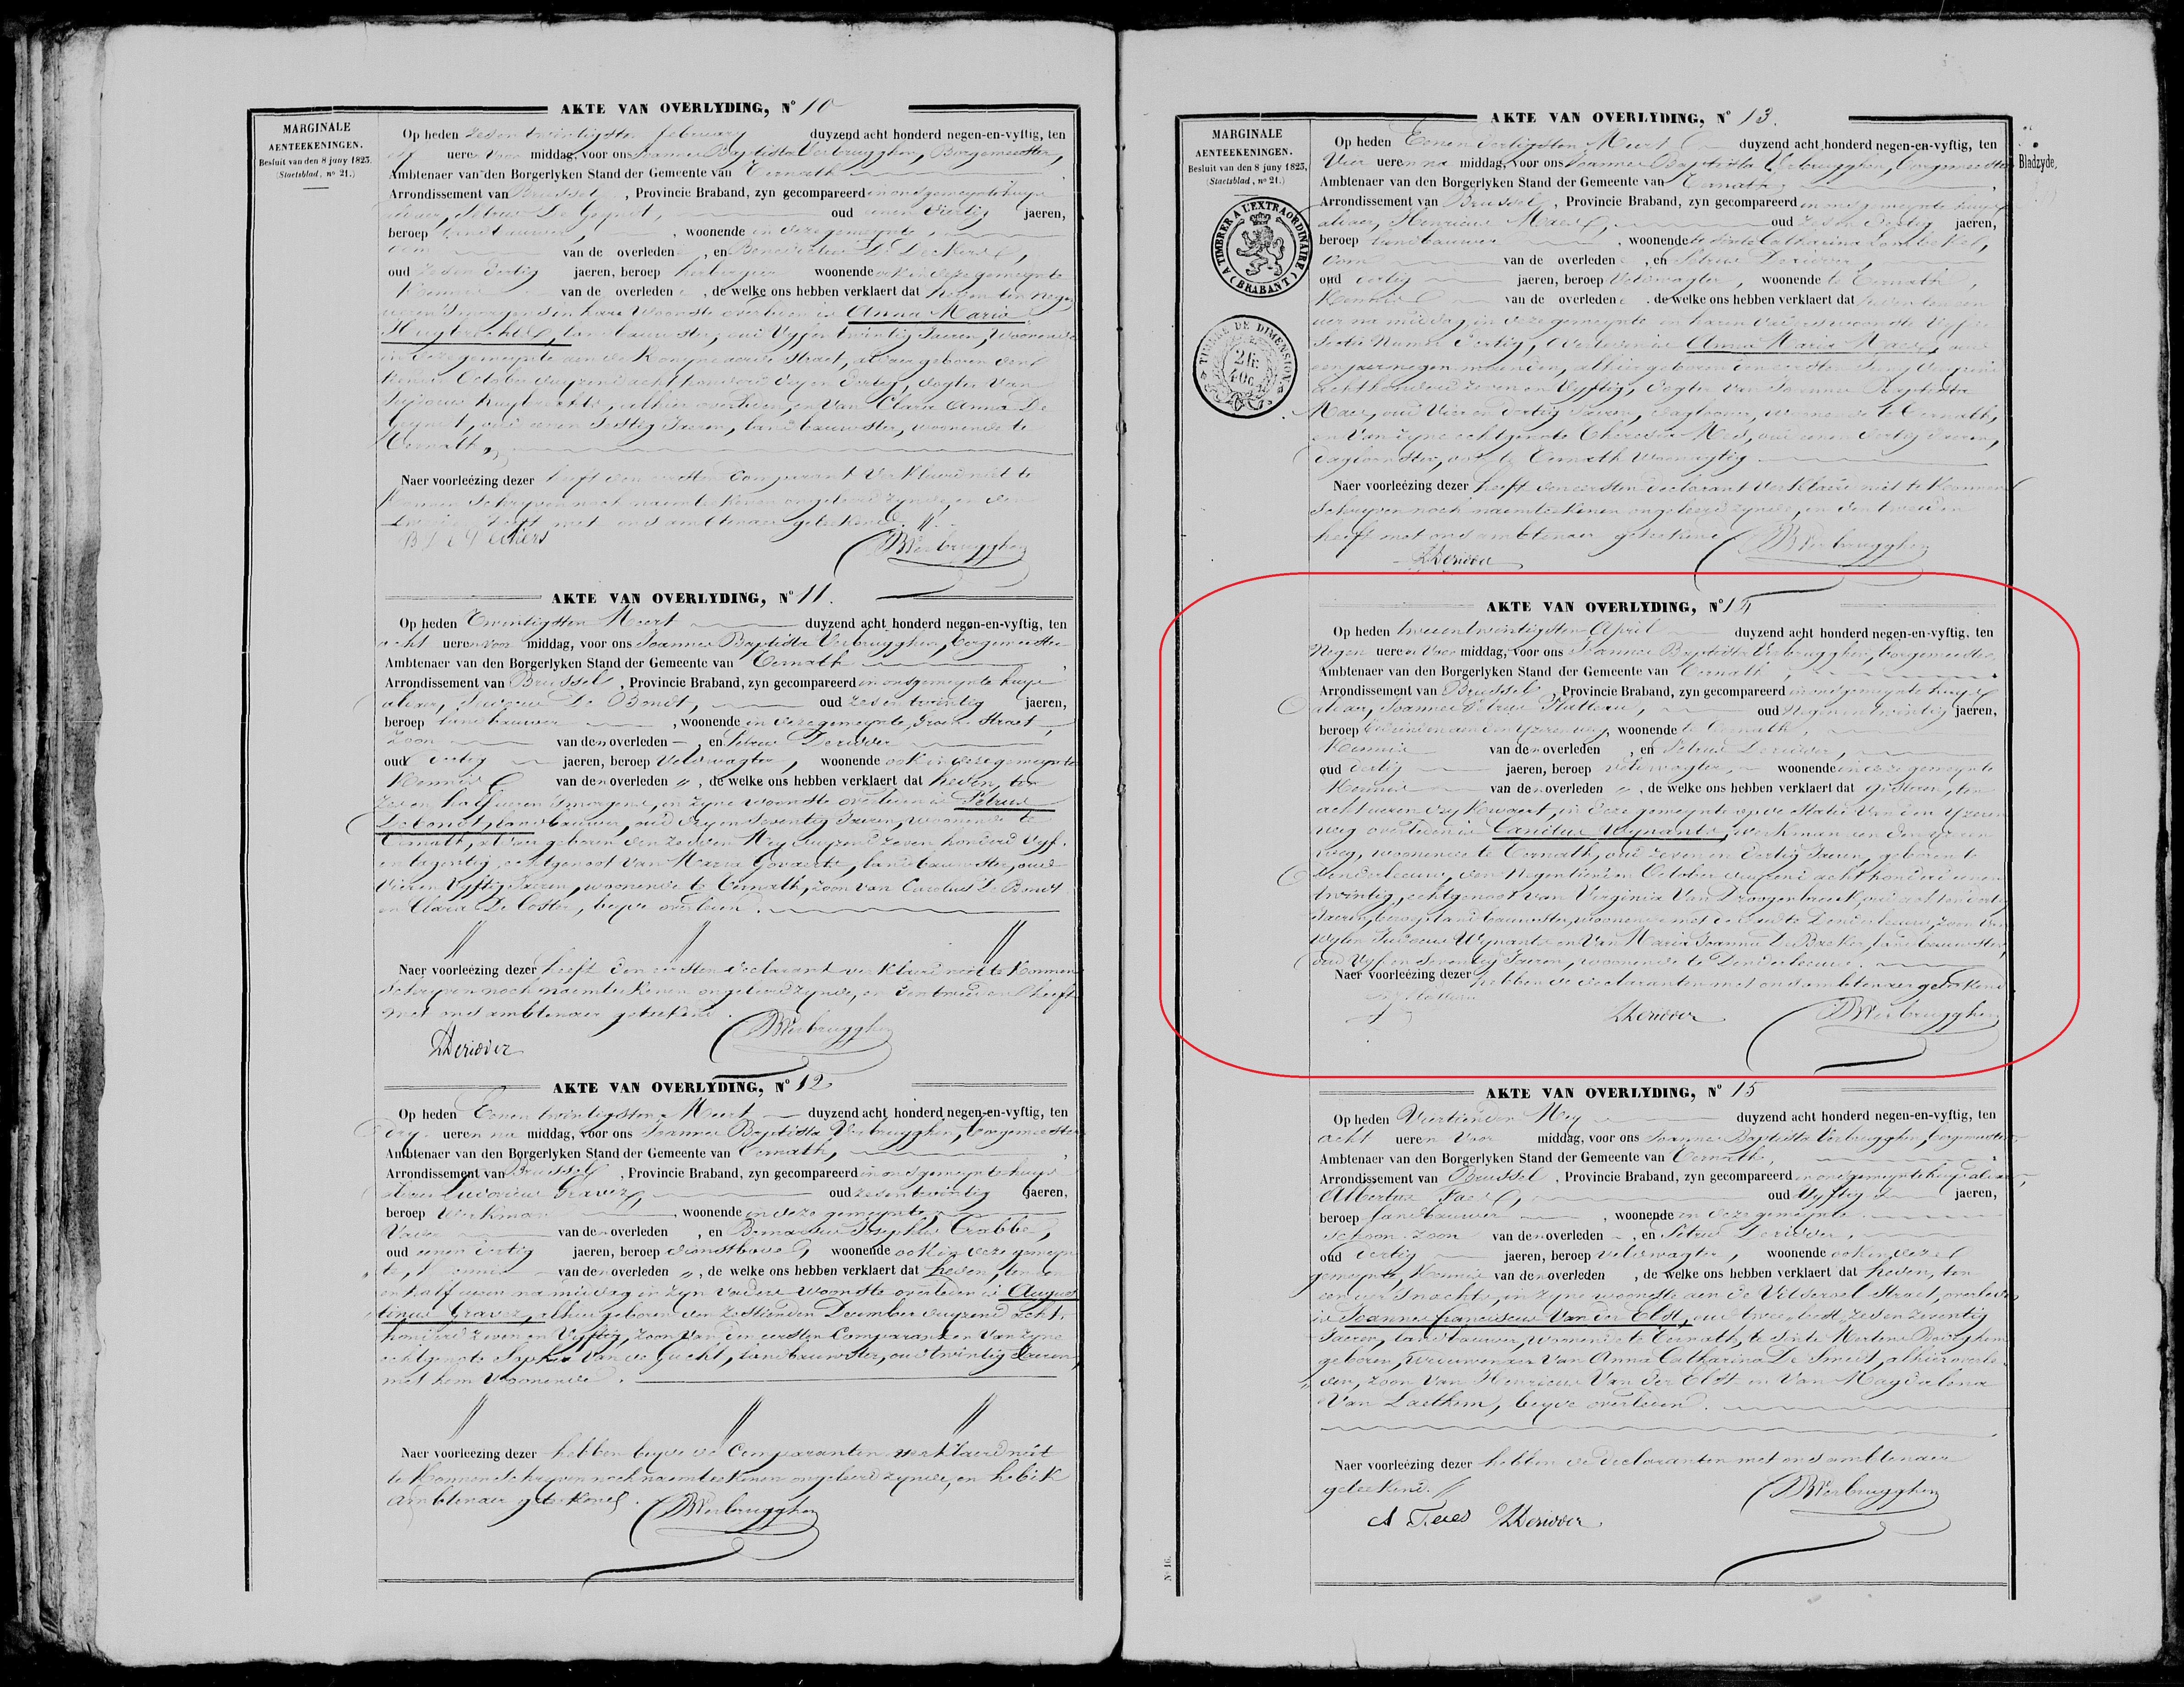 AKTE VAN OVERLYDING, N° 10
MARGINALE
AENTEEKENINGEN.
Besluit van den 8 juny 1823.
(Staetsblad, n° 21.)
Op heden zesentwintigsten february duyzend acht honderd negen-en-vyftig, ten
ueren voor middag, voor ons Joannes Baptista Verbrugghen, Borgemeester,
Ambtenaer van den Borgerlyken Stand der Gemeente van Ternath
Arrondissement van Brussel, Provincie Braband, zyn gecompareerd in ons gemeynte huys
aldaer, Petrus De Geyndt, oud eenen Veertig jaeren,
beroep landbauwer, woonende in deze gemeynte,
oom van de overledene, en Benedictus De Deckers,
oud zesen dertig jaeren, beroep herbergier woonende ook in deze gemeynte
Kennis van de overledene, de welke ons hebben verklaert dat heden ten negen
ueren 'smorgens in hare Woonste overleden is Anna Maria
Huybrechts, landbauwster, oud Vyfentwintig Jaeren, Woonende
in deze gemeynte aen de Straet, aldaer geboren den
October duyzend acht honderd dry en dertig, dogter Van
Judocus Huybrechts, alhier overleden, en Van Clara Anna De
Geyndt, oud eenen Sestig Jaeren, landbauwster, woonende te
Ternath,
Naer voorleézing dezer heeft den eersten Comparant Verklaerd niet te
Konnen Schryven noch naemteekenen ongeleerd zynde, en den
tweeden heeft met ons ambtenaer geteekend.
JBVerbrugghen
AKTE VAN OVERLYDING, N° 11.
Op heden Twintigsten Meert duyzend acht honderd negen-en-vyftig, ten
acht ueren voor middag, voor ons Joannes Baptista Verbrugghen, borgemeester
Ambtenaer van den Borgerlyken Stand der Gemeente van Ternath
Arrondissement van Brussel, Provincie Braband, zyn gecompareerd in ons gemeynte huys
aldaer, Judocus De Bondt, oud zesentwintig jaeren,
beroep landbauwer, woonende in deze gemeynte, Groene Straet,
Zoon van den overleden, en Petrus Deridder
oud dertig jaeren, beroep Veldwagter, woonende ook in deze gemeynte
Kennis van den overleden, de welke ons hebben verklaert dat heden, ten
zes en half ueren 'smorgens, in zyne woonste overleden is Petrus
Debondt, landbauwer, oud dry en Seventig Jaeren, woonende te
Ternath, aldaer geboren den zesden Mey duyzend zeven honderd Vyf
en tagentig, echtgenoot Van Maria Govaerts, landbauwster, oud
Vier en Vyftig Jaeren, woonende te Ternath, Zoon van Carolus De Bondt
en Clara De Coster, beyde overleden.
Naer voorleézing dezer heeft den eersten declarant verklaerd niet te Konnen
Schryven noch naemteekenen ongeleerd zynde, en den tweeden heeft
met ons ambtenaer geteekend.
JBVerbrugghen
PDeridder
AKTE VAN OVERLYDING, N° 12
Op heden Eenen twintigsten Meert duyzend acht honderd negen-en-vyftig, ten
Dry ueren na middag, voor ons Joannes Baptista Verbrugghen, borgemeester
Ambtenaer van den Borgerlyken Stand der Gemeente van Ternath,
Arrondissement van Brussel, Provincie Braband, zyn gecompareerd in ons gemeynte huys
aldaer Ludovicus Gravez, oud zesentwintig jaeren,
beroep Werkman, woonende in deze gemeynte
Vader van den overleden, en Bernardus Josephus Crabbe,
oud eenen dertig jaeren, beroep dienstbode, woonende ook in deze gemeyn
te, Kennis van den overleden, de welke ons hebben verklaert dat heden, ten
en half ueren na middag in zyn Vaders Woonste overleden is Augus
tinus Gravez, alhier geboren den Zestienden December duyzend acht
honderd zeven en Vyftig, zoon Van den eersten Comparant en Van zyne
echtgenote Sophia Van de Gucht, landbauwster, oud twintig Jaeren,
met hem Woonende.
Naer voorleezing dezer hebben beyde de Comparanten verklaerd niet
te Konnen Schryven noch naemteekenen ongeleerd zynde, en heb ik
Ambtenaer geteekend.
JBVerbrugghen
AKTE VAN OVERLYDING, N° 13.
MARGINALE
AENTEEKENINGEN.
Besluit van den 8 juny 1823,
(Staetsblad, n° 21.)
Bladzyde,
A TIMBRER A L'EXTRAORDINAIRE
(BRABANT)
TIMBRE DE DIMENSION
2 fr.
40 c.
Op heden Eenen dertigsten Meert duyzend acht honderd negen-en-vyftig, ten
Vier ueren na middag, voor ons Joannes Baptista Verbrugghen, borgemeester
Ambtenaer van den Borgerlyken Stand der Gemeente van Ternath,
Arrondissement van Brussel, Provincie Braband, zyn gecompareerd in ons gemeynte huys
aldaer, Henricus Maes, oud zesen dertig jaeren,
beroep landbauwer, woonende te Sinte Catharina Lombeke,
oom van de overledene, en Petrus Deridder,
oud dertig jaeren, beroep Veldwagter, woonende te Ternath,
Kennis van de overledene, de welke ons hebben verklaert dat heden ten een
uer na middag, in deze gemeynte en haren Vaders woonste Vyfde
Sectie Numer dertig, overleden is Anna Maria Maes, oud
een jaer negen maenden, alhier geboren den eersten Juny duyzend
acht honderd zeven en Vyftig, dogter Van Joannes Baptista
Maes, oud Vier en dertig Jaeren, dagloonder, woonende te Ternath,
en Van zyne echtgenote Theresia Mees, oud eenen dertig Jaeren,
dagloonster, ook te Ternath Woonagtig
Naer voorleézing dezer heeft den eersten declarant Verklaerd niet te Konnen
Schryven noch naemteekenen ongeleerd zynde, en den tweeden
heeft met ons ambtenaer geteekend
JBVerbrugghen
PDeridder
AKTE VAN OVERLYDING, N° 14
Op heden tweeentwintigsten April duyzend acht honderd negen-en-vyftig, ten
Negen ueren Voor middag, voor ons Joannes Baptista Verbrugghen, borgemeester
Ambtenaer van den Borgerlyken Stand der Gemeente van Ternath,
Arrondissement van Brussel, Provincie Braband, zyn gecompareerd in ons gemeynte huys
aldaer, Joannes Petrus oud Negen en twintig jaeren,
beroep aen den Yzeren weg, woonende te Ternath,
Kennis van den overleden, en Petrus Deridder,
oud dertig jaeren, beroep veldwagter, woonende in deze gemeynte
Kennis van den overleden, de welke ons hebben verklaert dat gisteren, ten
acht ueren dry Kwaert, in deze gemeynte op de Statie Van den Yzeren
weg overleden is Canitus Wynants, werkman aen den yzeren
weg, woonende te Ternath, oud zeven en dertig Jaeren, geboren te
Denderleeuw, den Negentienden October duyzend acht honderd eenen
twintig, echtgenoot van Virginia Van Droogenbroeck, oud acht en dertig
Jaeren, beroep landbauwster, woonende met de te Denderleeuw, Zoon Van
Wylen Judocus Wynants en Van Maria Joanna De Backer, landbauwster,
oud Vyf en Seventig Jaeren, woonende te Denderleeuw.
Naer voorleézing dezer hebben de declaranten met ons ambtenaer geteekend
PDeridder
JBVerbrugghen
AKTE VAN OVERLYDING, N° 15
Op heden Viertienden Mey duyzend acht honderd negen-en-vyftig, ten
acht ueren Voor middag, voor ons Joannes Baptista Verbrugghen, borgemeester
Ambtenaer van den Borgerlyken Stand der Gemeente van Ternath,
Arrondissement van Brussel, Provincie Braband, zyn gecompareerd in ons gemeynte huys aldaer,
Albertus oud Vyftig jaeren,
beroep landbauwer, woonende in deze gemeynte
Schoon-zoon van den overleden, en Petrus Deridder,
oud dertig jaeren, beroep veldwagter, woonende ook in deze
gemeynte, Kennis van den overleden, de welke ons hebben verklaert dat heden, ten
een uer 'snachts, in zyne woonste aen de Straet, overleden
is Joannes Franciscus Van der Elst, oud zes en zeventig
Jaeren, landbauwer, woonende te Ternath, te Sinte Mertens Bodeghem
geboren, Weduwenaer Van Anna Catharina De Smedt, alhier overle-
den, zoon Van Henricus Van der Elst en Van Magdalena
Van Laethem, beyde overleden.
Naer voorleézing dezer hebben de declaranten met ons ambtenaer
geteekend.
JBVerbrugghen
PDeridder
N° 16.